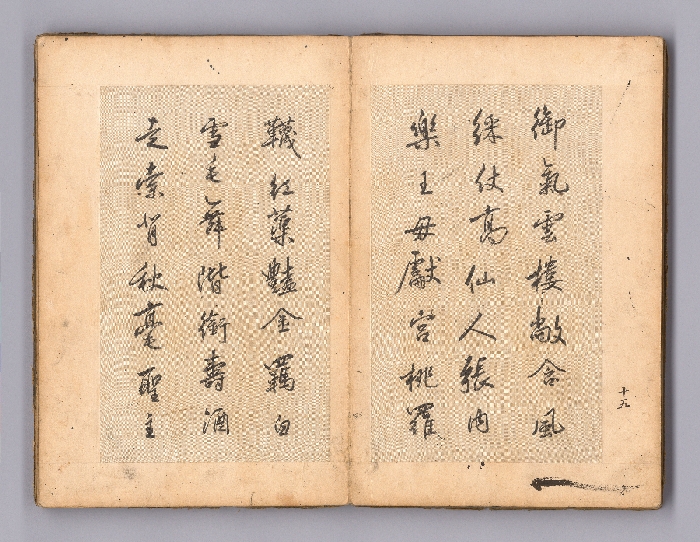 御氣雲樓敞含風
綵仗高仙人張内
樂王母獻宮桃羅
韤紅蕖豔金羈白
雪毛舞階銜壽酒
走索背秋毫聖主
十五